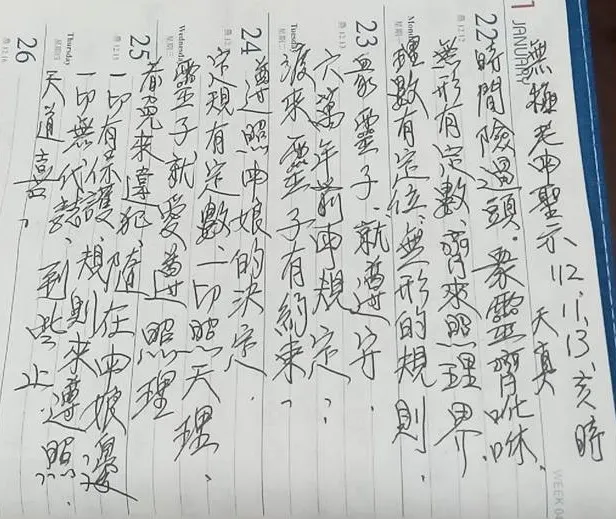 1 JANUARY
無極老申聖示 112.11.13.亥時
天真
22
時間險過頭。眾靈齊呲咻.
農 12.12
無形有定數、齊來照理界
Monday
星期一
理數有定位、無形的規則、
23
農 12.13
眾靈子、就遵守.
六萬年前申規定、
Tuesday
後來靈子有約束、
24
遵照申娘的決定、
定規有定數、一切照天理、
Wednesday
靈子就愛遵照理
25
農 12.15
來違犯、隨在申娘邊
一切有保護、規則來遵照.
Thursday
一切無代誌、
26
農 12.16
天道喜、到些止
WEEK 04